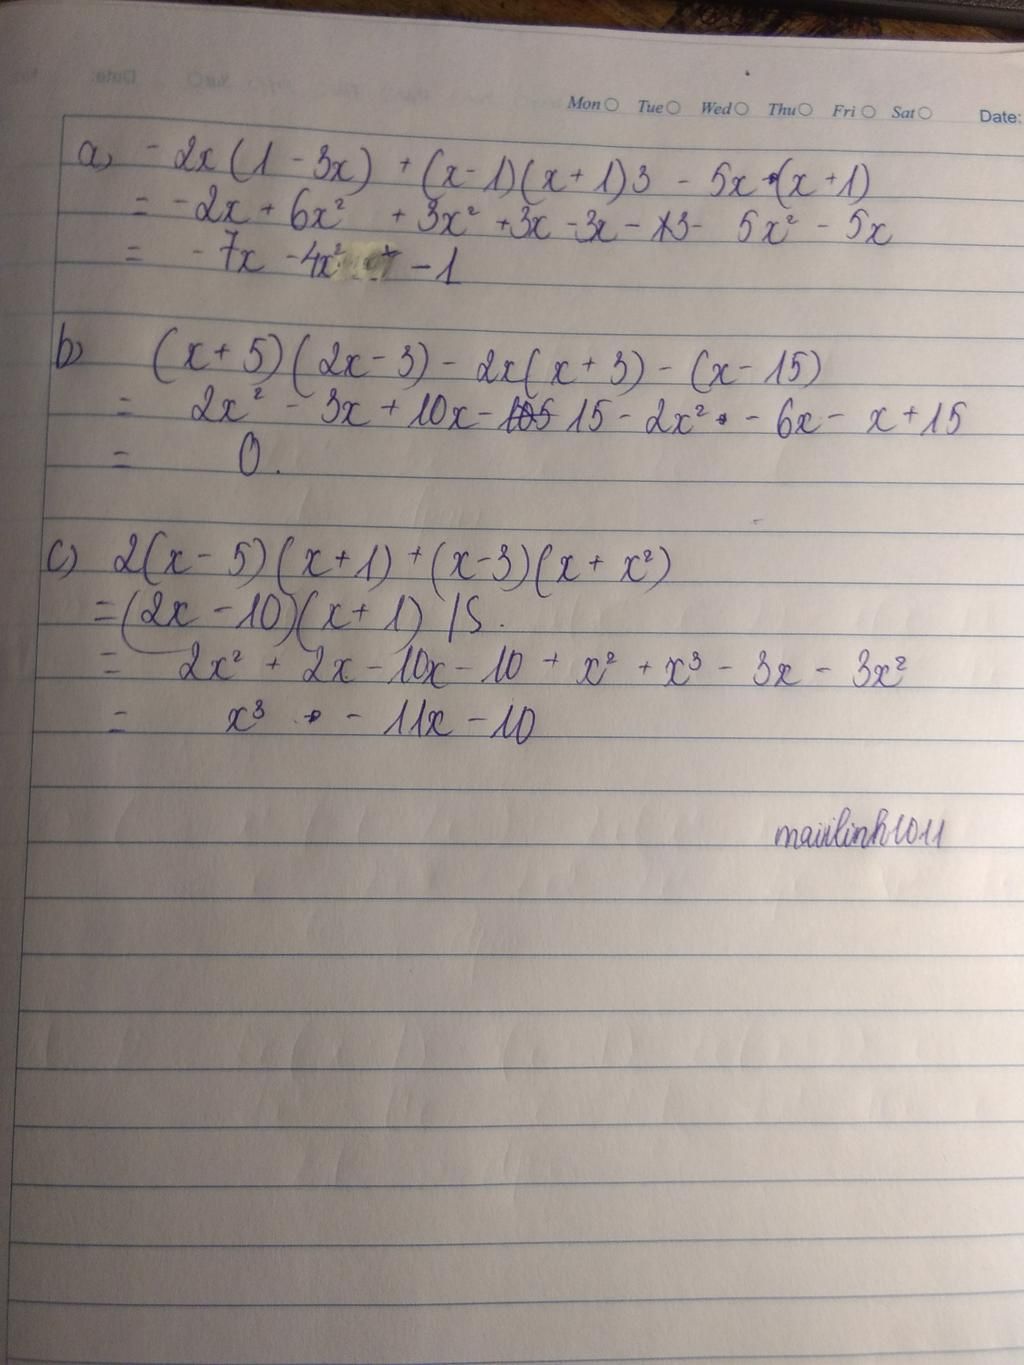 Mon Tue Wed Thu Fri Sat Date:
a) - 2x(1 - 3x) + (x-1)(x+1)3 - 5x(x+1)
= -2x + 6x² + 3x² + 3x - 3x - 3 - 5x² - 5x
= - 7x - 4x² - 1
b) (x+5)(2x-3) - 2x(x+3) - (x-15)
= 2x² - 3x + 10x - 15 - 2x² - 6x - x + 15
= 0.
c) 2(x-5)(x+1) + (x-3)(x+x²)
= (2x-10)(x+1)
= 2x² + 2x - 10x - 10 + x² + x³ - 3x - 3x²
= x³ - 11x - 10
maiilinh1011